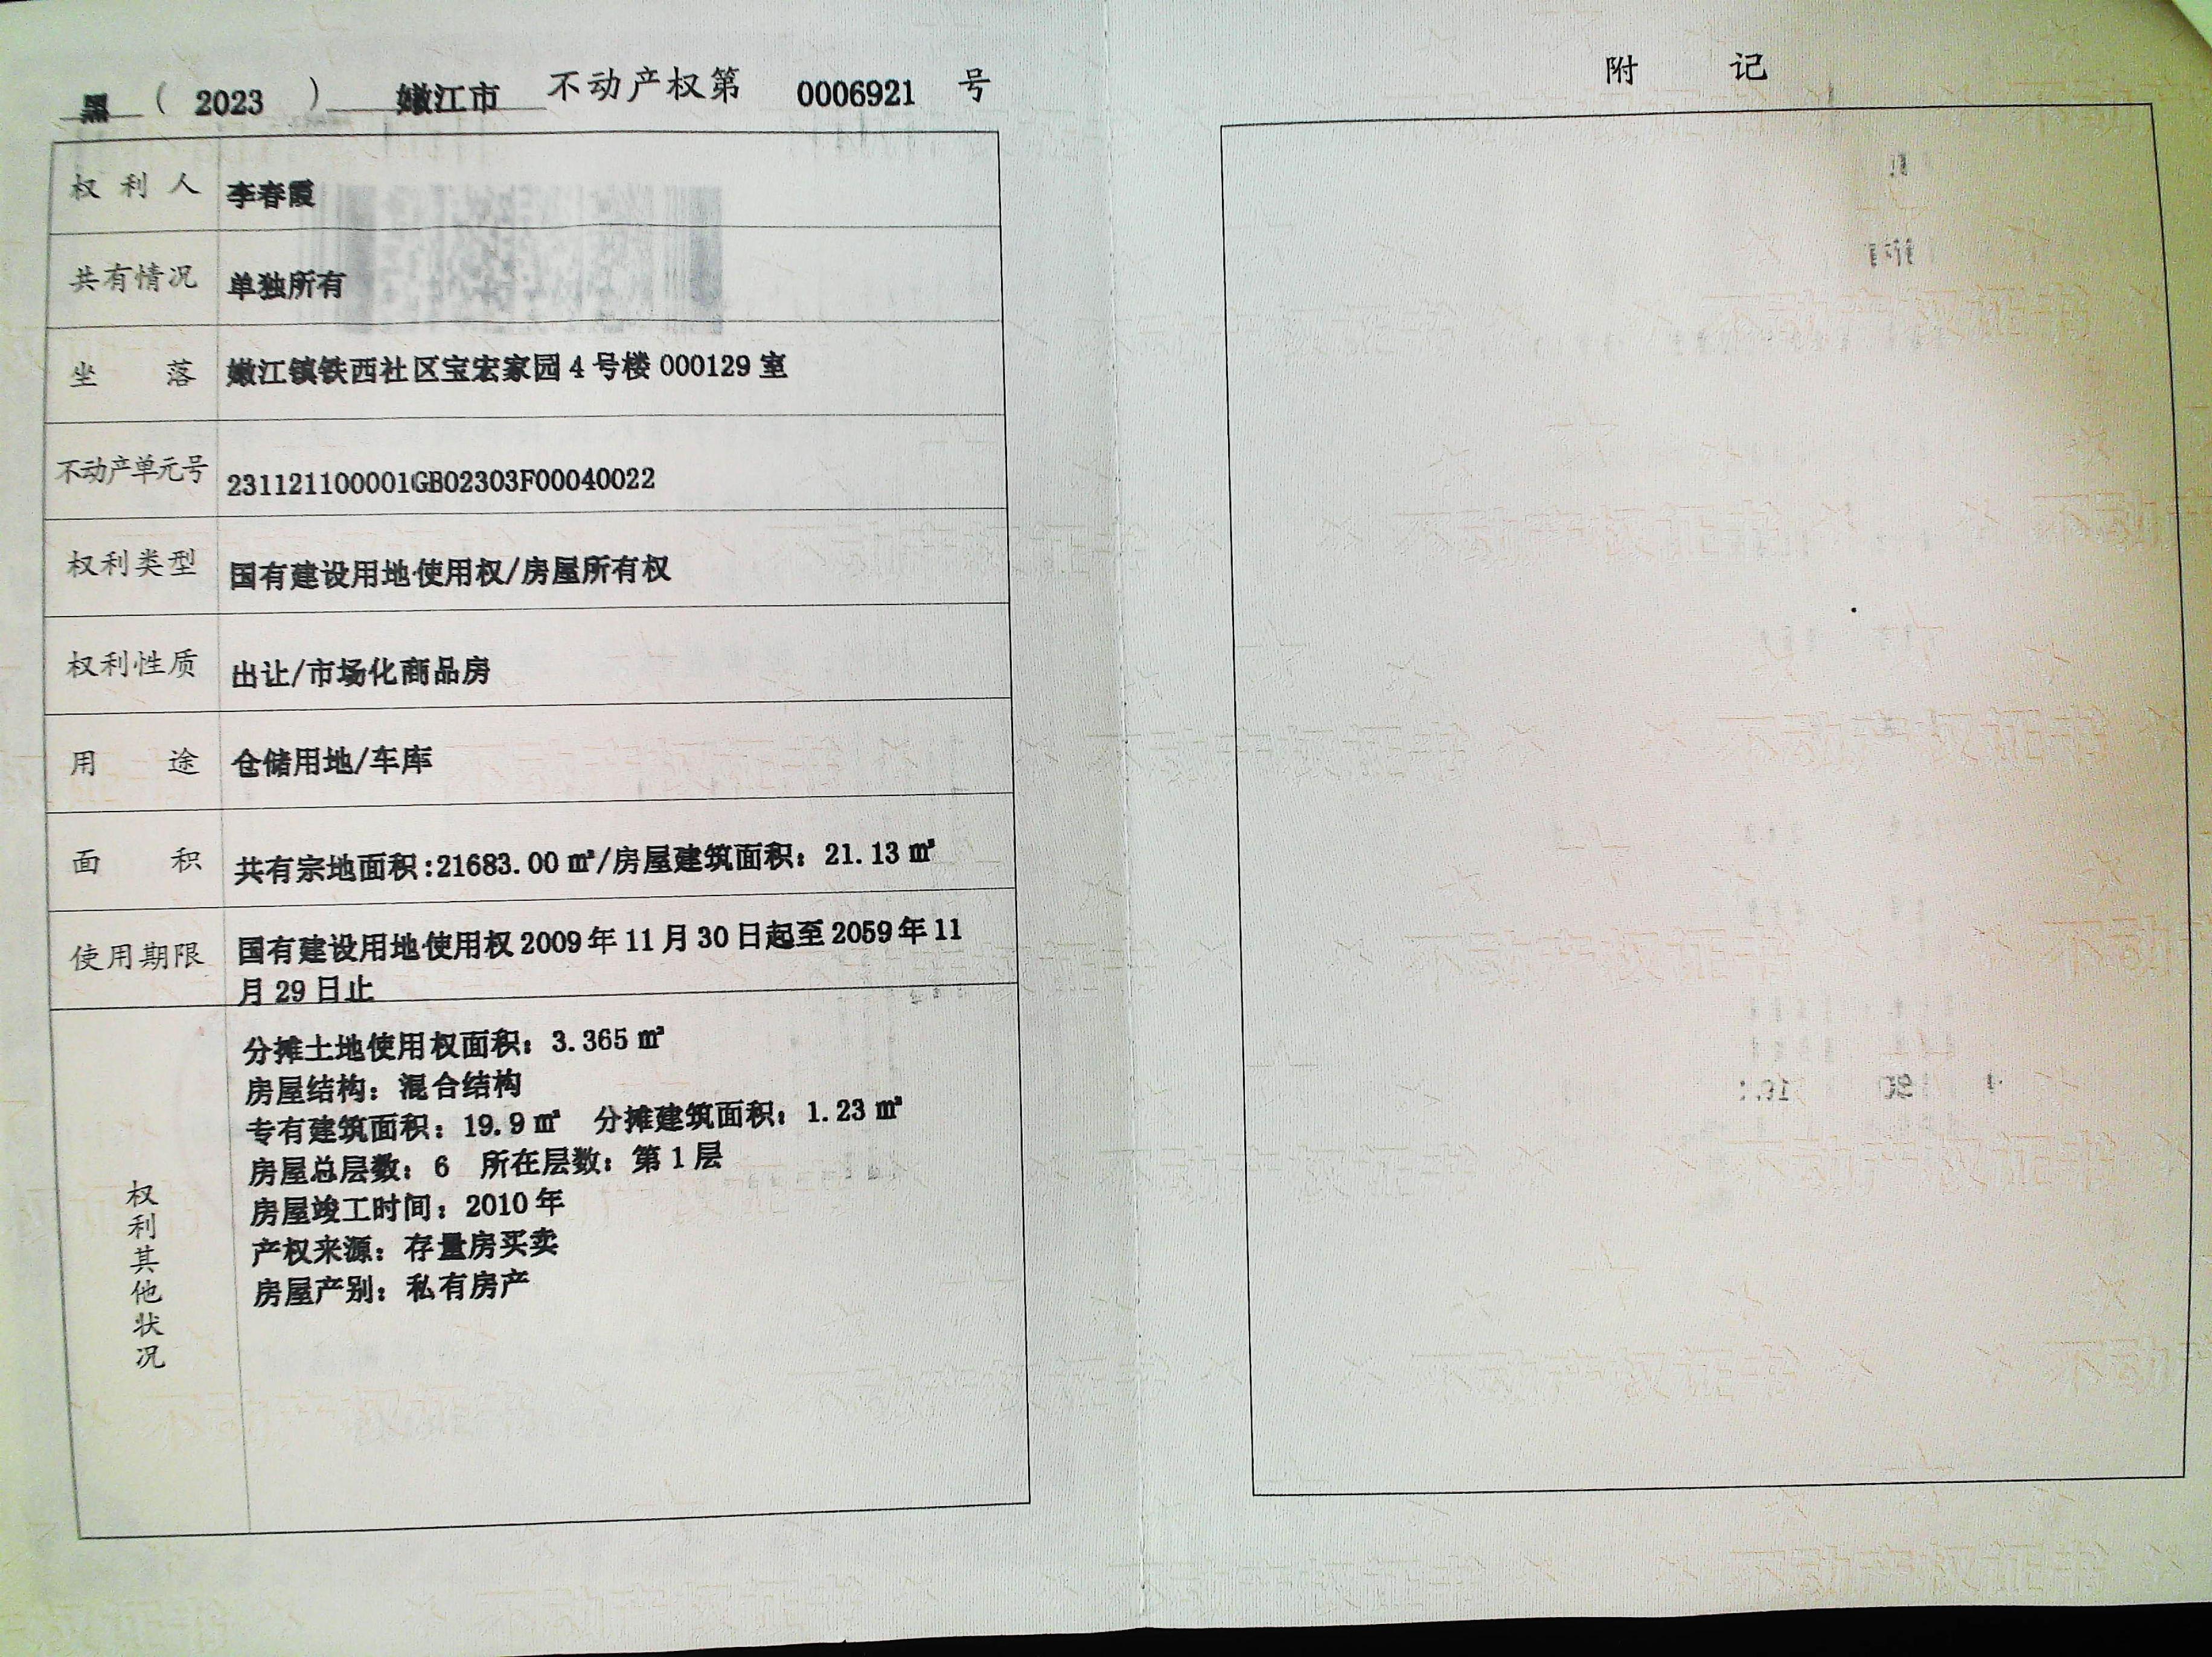 黑（2023）嫩江市不动产权第 0006921 号
权利人 李春霞
共有情况 单独所有
坐落 嫩江镇铁西社区宝宏家园4号楼000129室
不动产单元号 231121100001GB02303F00040022
权利类型 国有建设用地使用权/房屋所有权
权利性质 出让/市场化商品房
用途 仓储用地/车库
面积 共有宗地面积:21683.00㎡/房屋建筑面积：21.13㎡
使用期限 国有建设用地使用权2009年11月30日起至2059年11
月29日止
权利其他状况
分摊土地使用权面积：3.365㎡
房屋结构：混合结构
专有建筑面积：19.9㎡ 分摊建筑面积：1.23㎡
房屋总层数：6 所在层数：第1层
房屋竣工时间：2010年
产权来源：存量房买卖
房屋产别：私有房产
附记